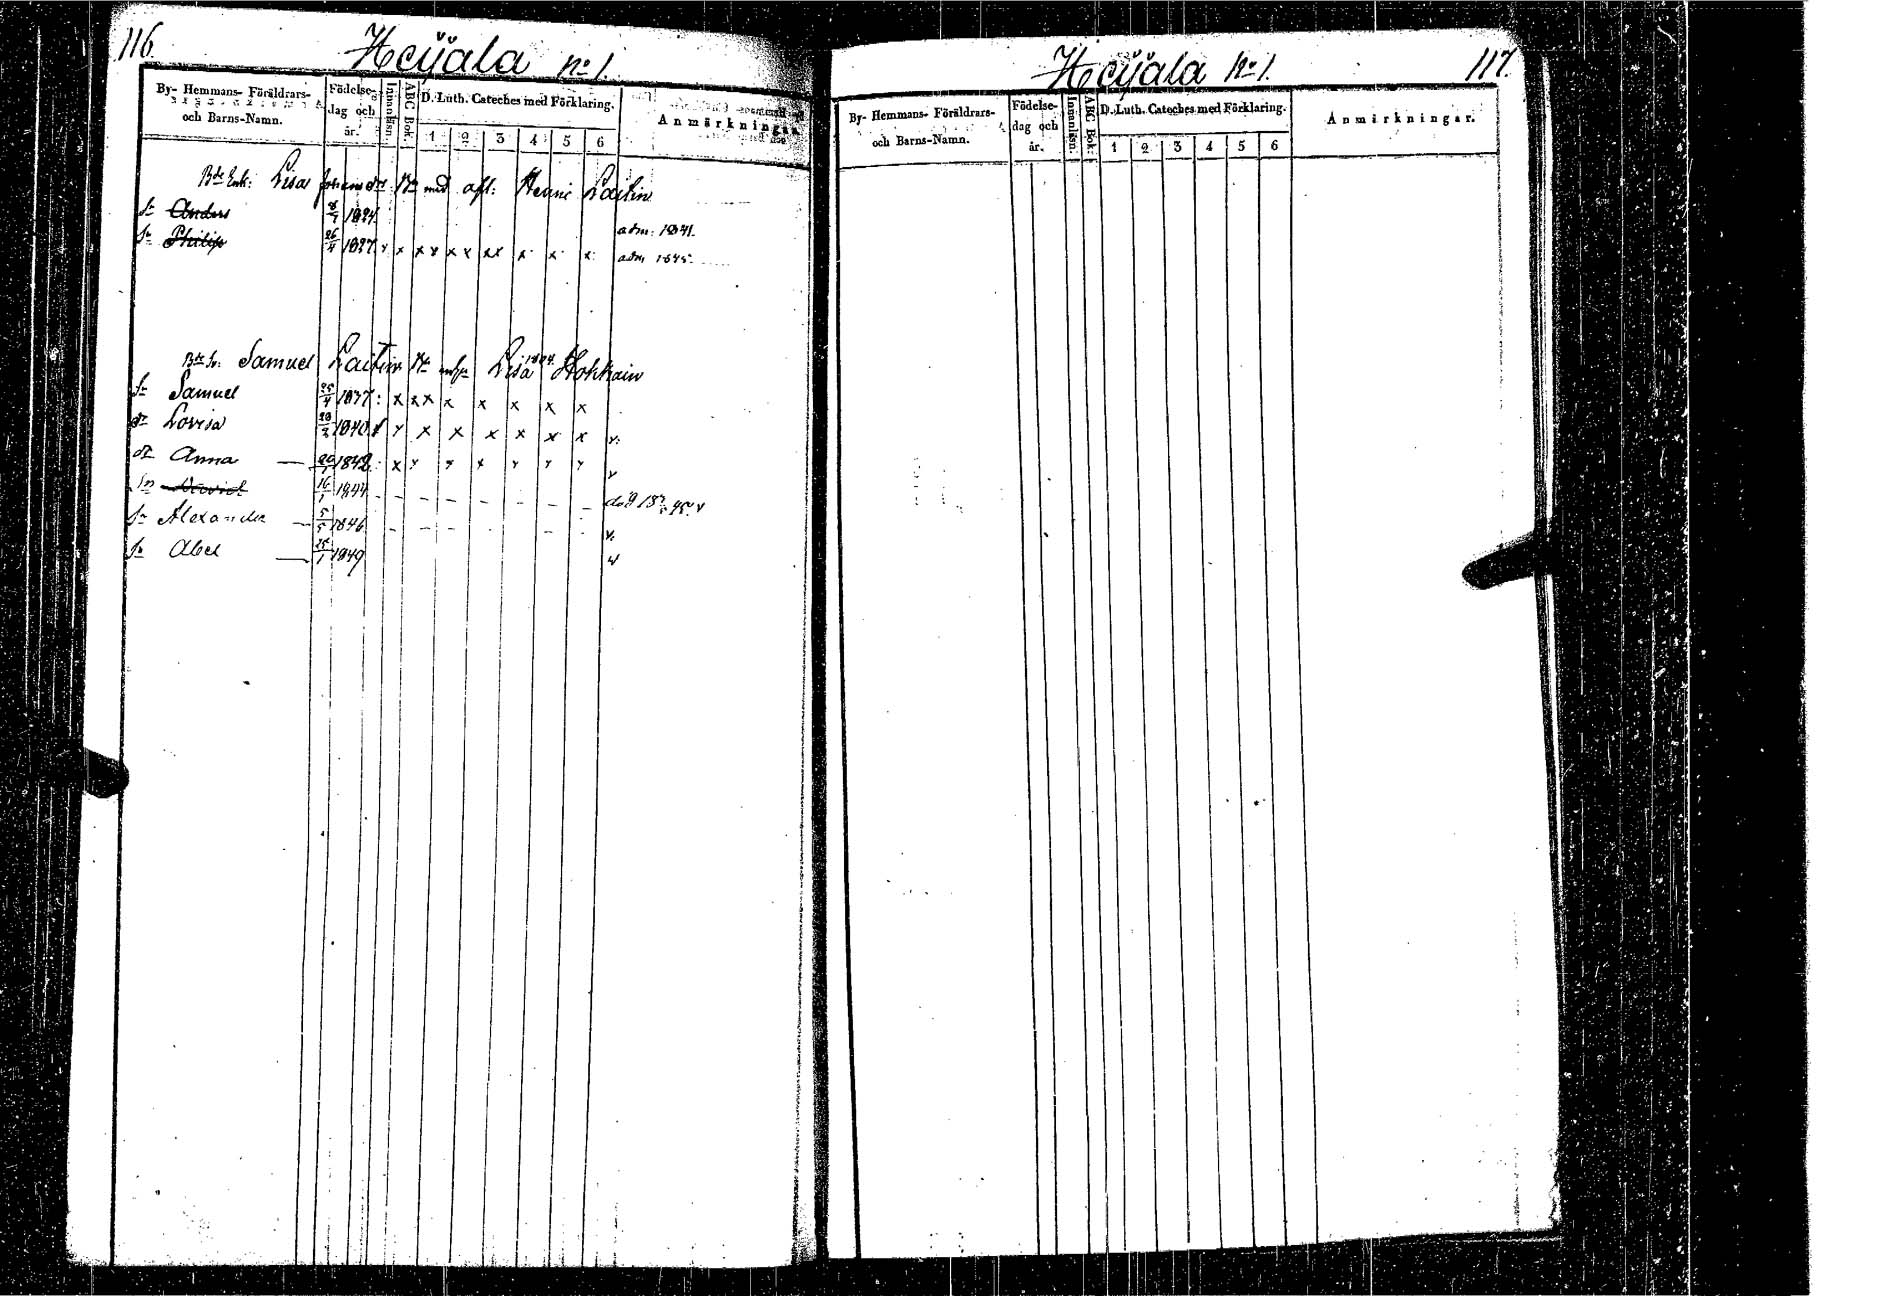 116.
Heÿala No 1.
By- Hemmans- Föräldrars-
och Barns-Namn.
Födelse-
dag och
år.
Innanläsn:
ABC Bok.
D. Luth. Cateches med Förklaring.
1 2 3 4 5 6
Anmärkningar.
Bde Enk: Lisa Johansdr Bn med afl: Laitin
Sn Anders 8/7 1824 adm: 1841.
Sn Philip 26/4 1827 x x x x x x x x x x x adm 1845
Bde Sn: Samuel Laitin Bn Lisa Hokkain
Sn Samuel 25/4 1837: x x x x x x x x
dr Lovisa 1840 x x x x x x x x v.
dr Anna — 1842 x x x x x x x v
Sn 16/1 1844 - - - - - - -
Sn Alexander — 5/5 1846 - - - - - v.
Sn Abel — 25/1 1849 v
Heÿala No 1.
117.
By- Hemmans- Föräldrars-
och Barns-Namn.
Födelse-
dag och
år.
Innanläsn:
ABC Bok:
D. Luth. Cateches med Förklaring.
1 2 3 4 5 6
Anmärkningar.